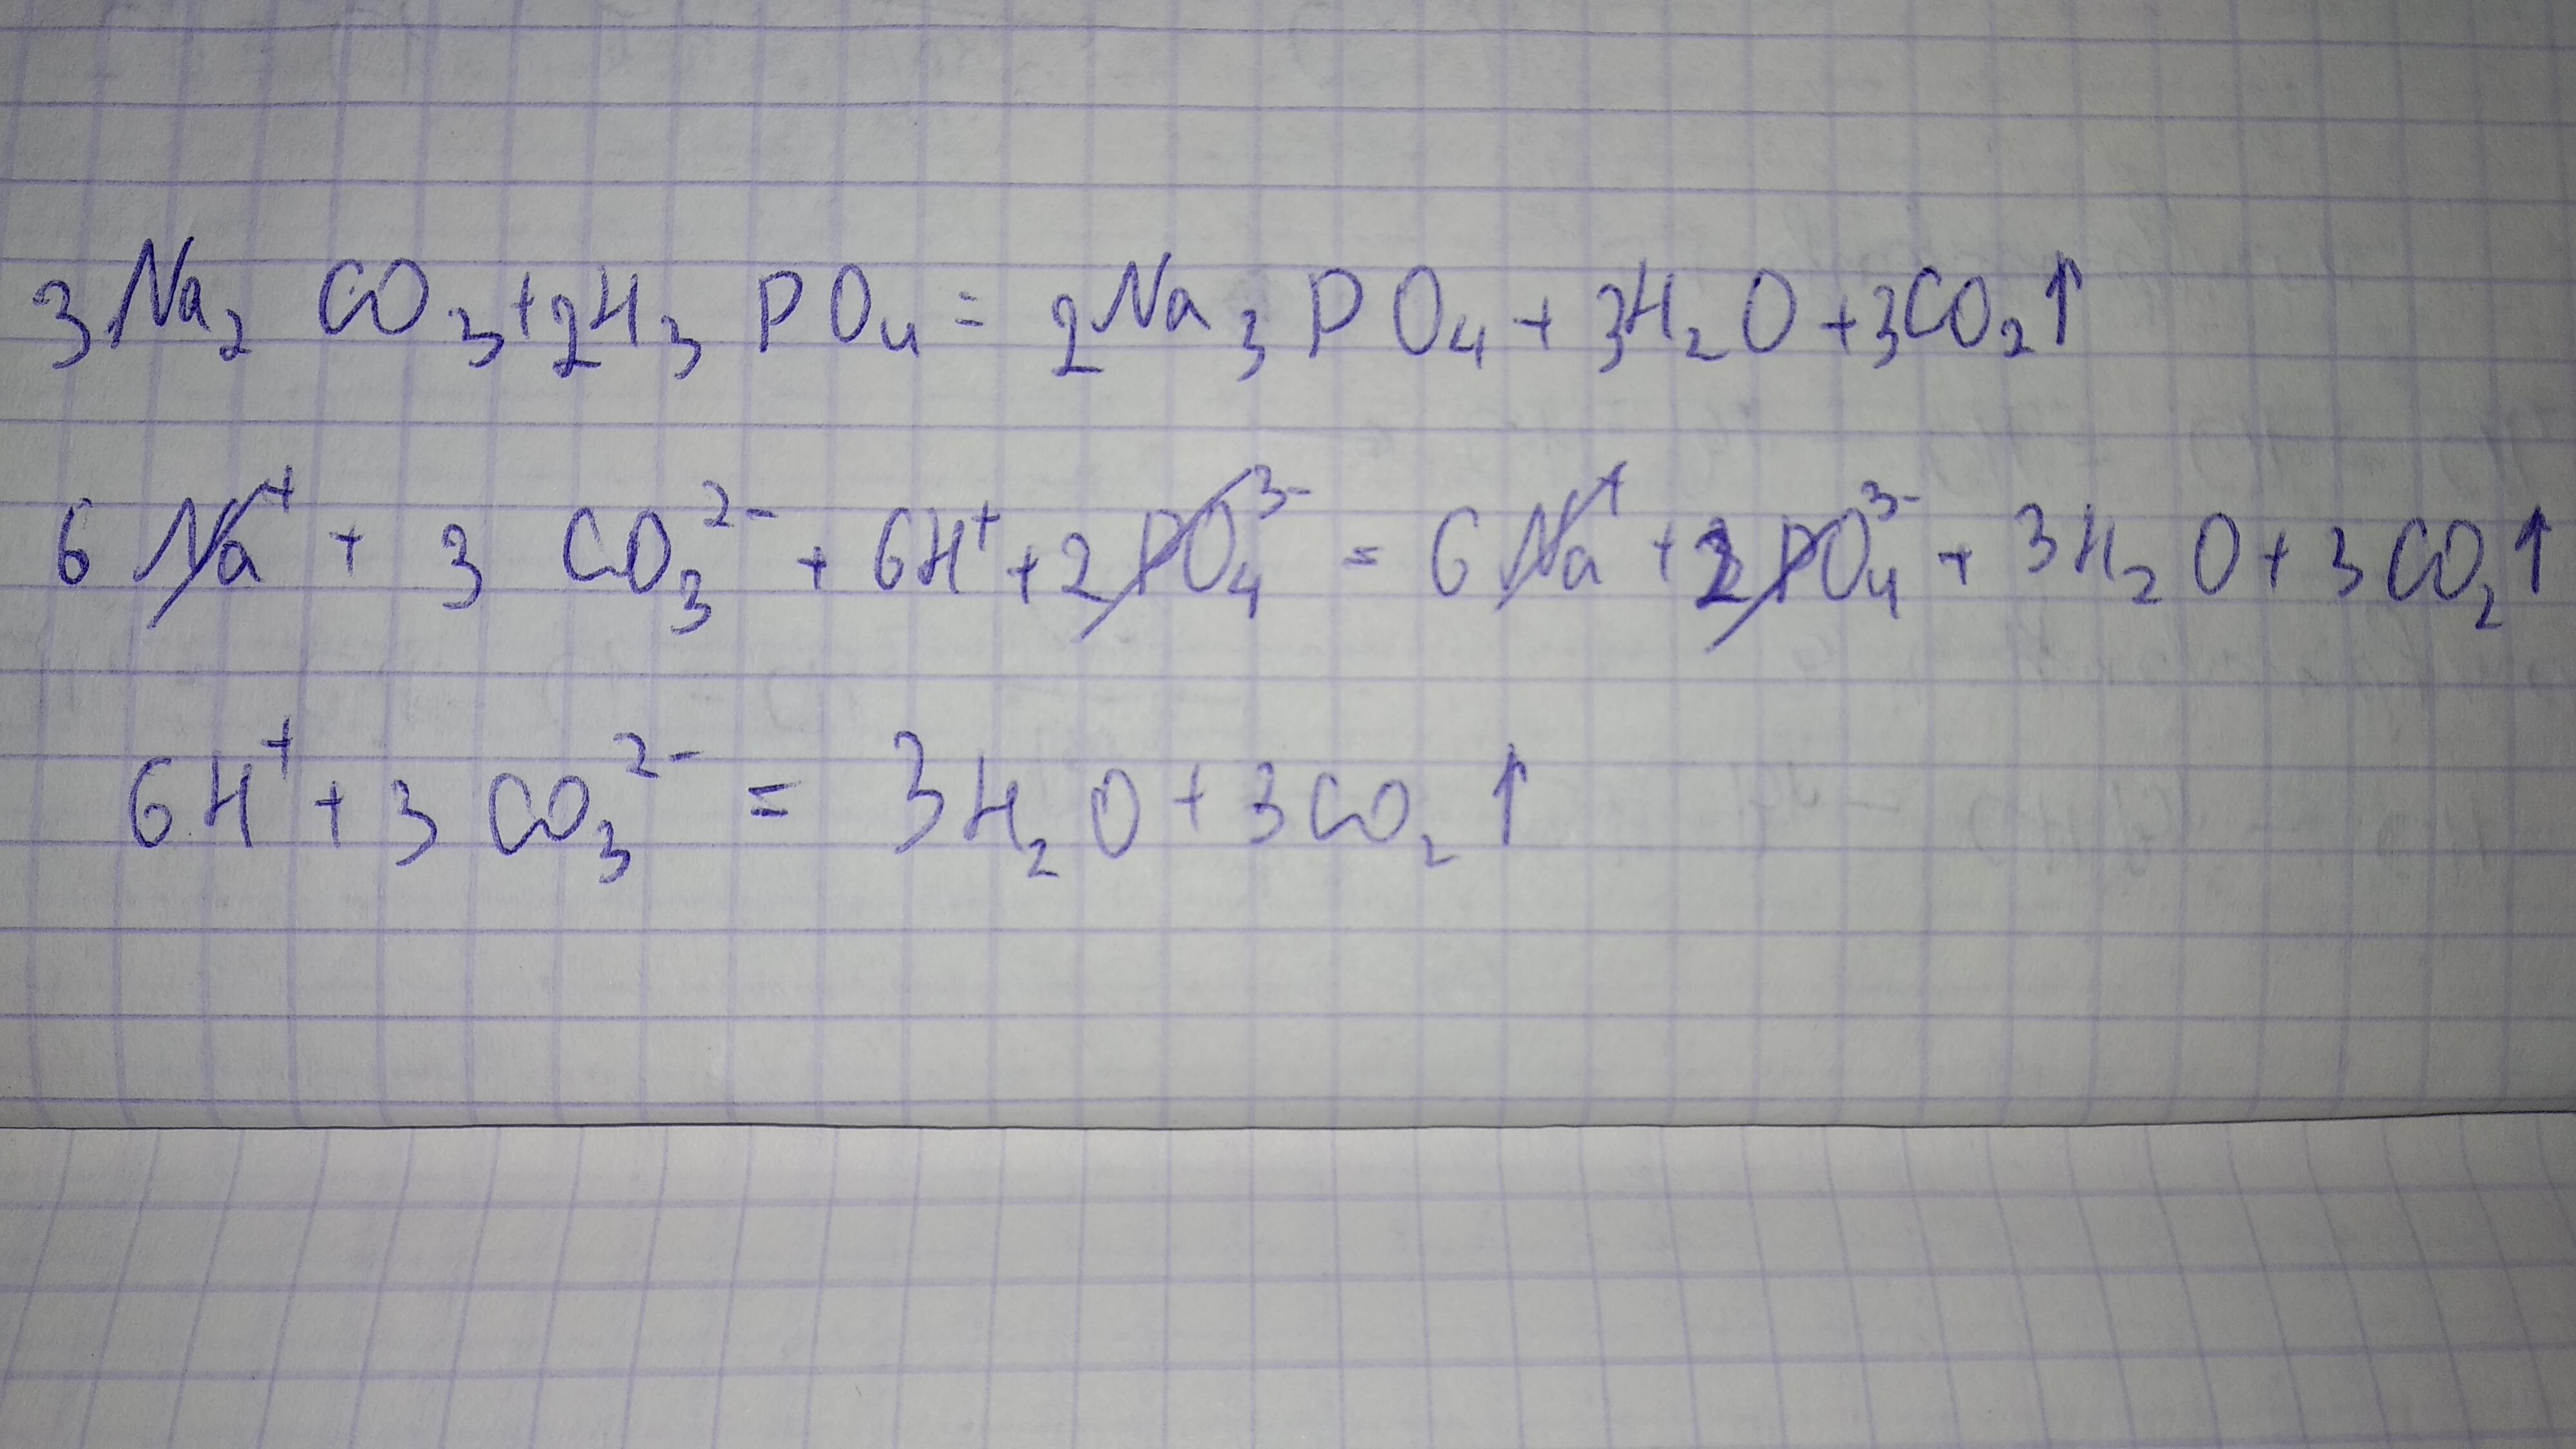 3Na₂CO₃+2H₃PO₄=2Na₃PO₄+3H₂O+3CO₂↑
6Na⁺+3CO₃²⁻+6H⁺+2PO₄³⁻=6Na⁺+2PO₄³⁻+3H₂O+3CO₂↑
6H⁺+3CO₃²⁻=3H₂O+3CO₂↑